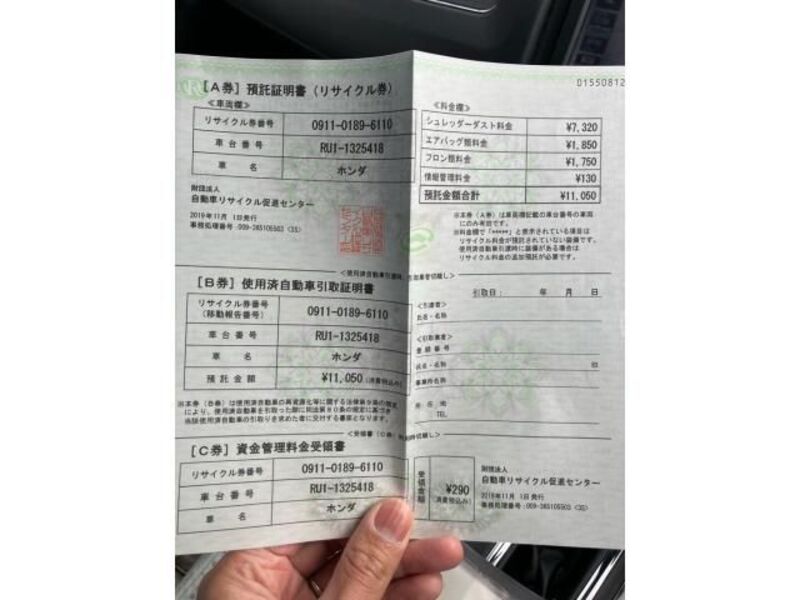 01550812
[A券] 預託証明書 (リサイクル券)
≪車両欄≫
リサイクル券番号 0911-0189-6110
車台番号 RU1-1325418
車名 ホンダ
財団法人
自動車リサイクル促進センター
2019年11月 1日発行
事務処理番号:009-265105503 (3S)
≪料金欄≫
シュレッダーダスト料金 ¥7,320
エアバッグ類料金 ¥1,850
フロン類料金 ¥1,750
情報管理料金 ¥130
預託金額合計 ¥11,050
※本券(A券)は車両欄記載の車台番号の車両
にのみ有効です。
※料金欄で「*****」と表示されている項目は
リサイクル料金が預託されていない装備です。
使用済自動車引渡時に該装備がある場合は
リサイクル料金の追加預託が必要です。
[B券] 使用済自動車引取証明書
リサイクル券番号
(移動報告番号) 0911-0189-6110
車台番号 RU1-1325418
車名 ホンダ
預託金額 ¥11,050 (消費税込み)
※本券(B券)は使用済自動車の再資源化等に関する法律第9条の規定
により、使用済自動車を引取った際に同法第80条の規定に基づき
当該使用済自動車の引取りを求めた者に交付する書面となります。
引取日: 年 月 日
<引渡者>
氏名・名称
<引取業者>
登録番号
氏名・名称 印
事業所名
所在地
TEL
[C券] 資金管理料金受領書
リサイクル券番号 0911-0189-6110
車台番号 RU1-1325418
車名 ホンダ
受領金額 ¥290
(消費税込み)
財団法人
自動車リサイクル促進センター
2019年11月 1日発行
事務処理番号:009-265105503 (3S)